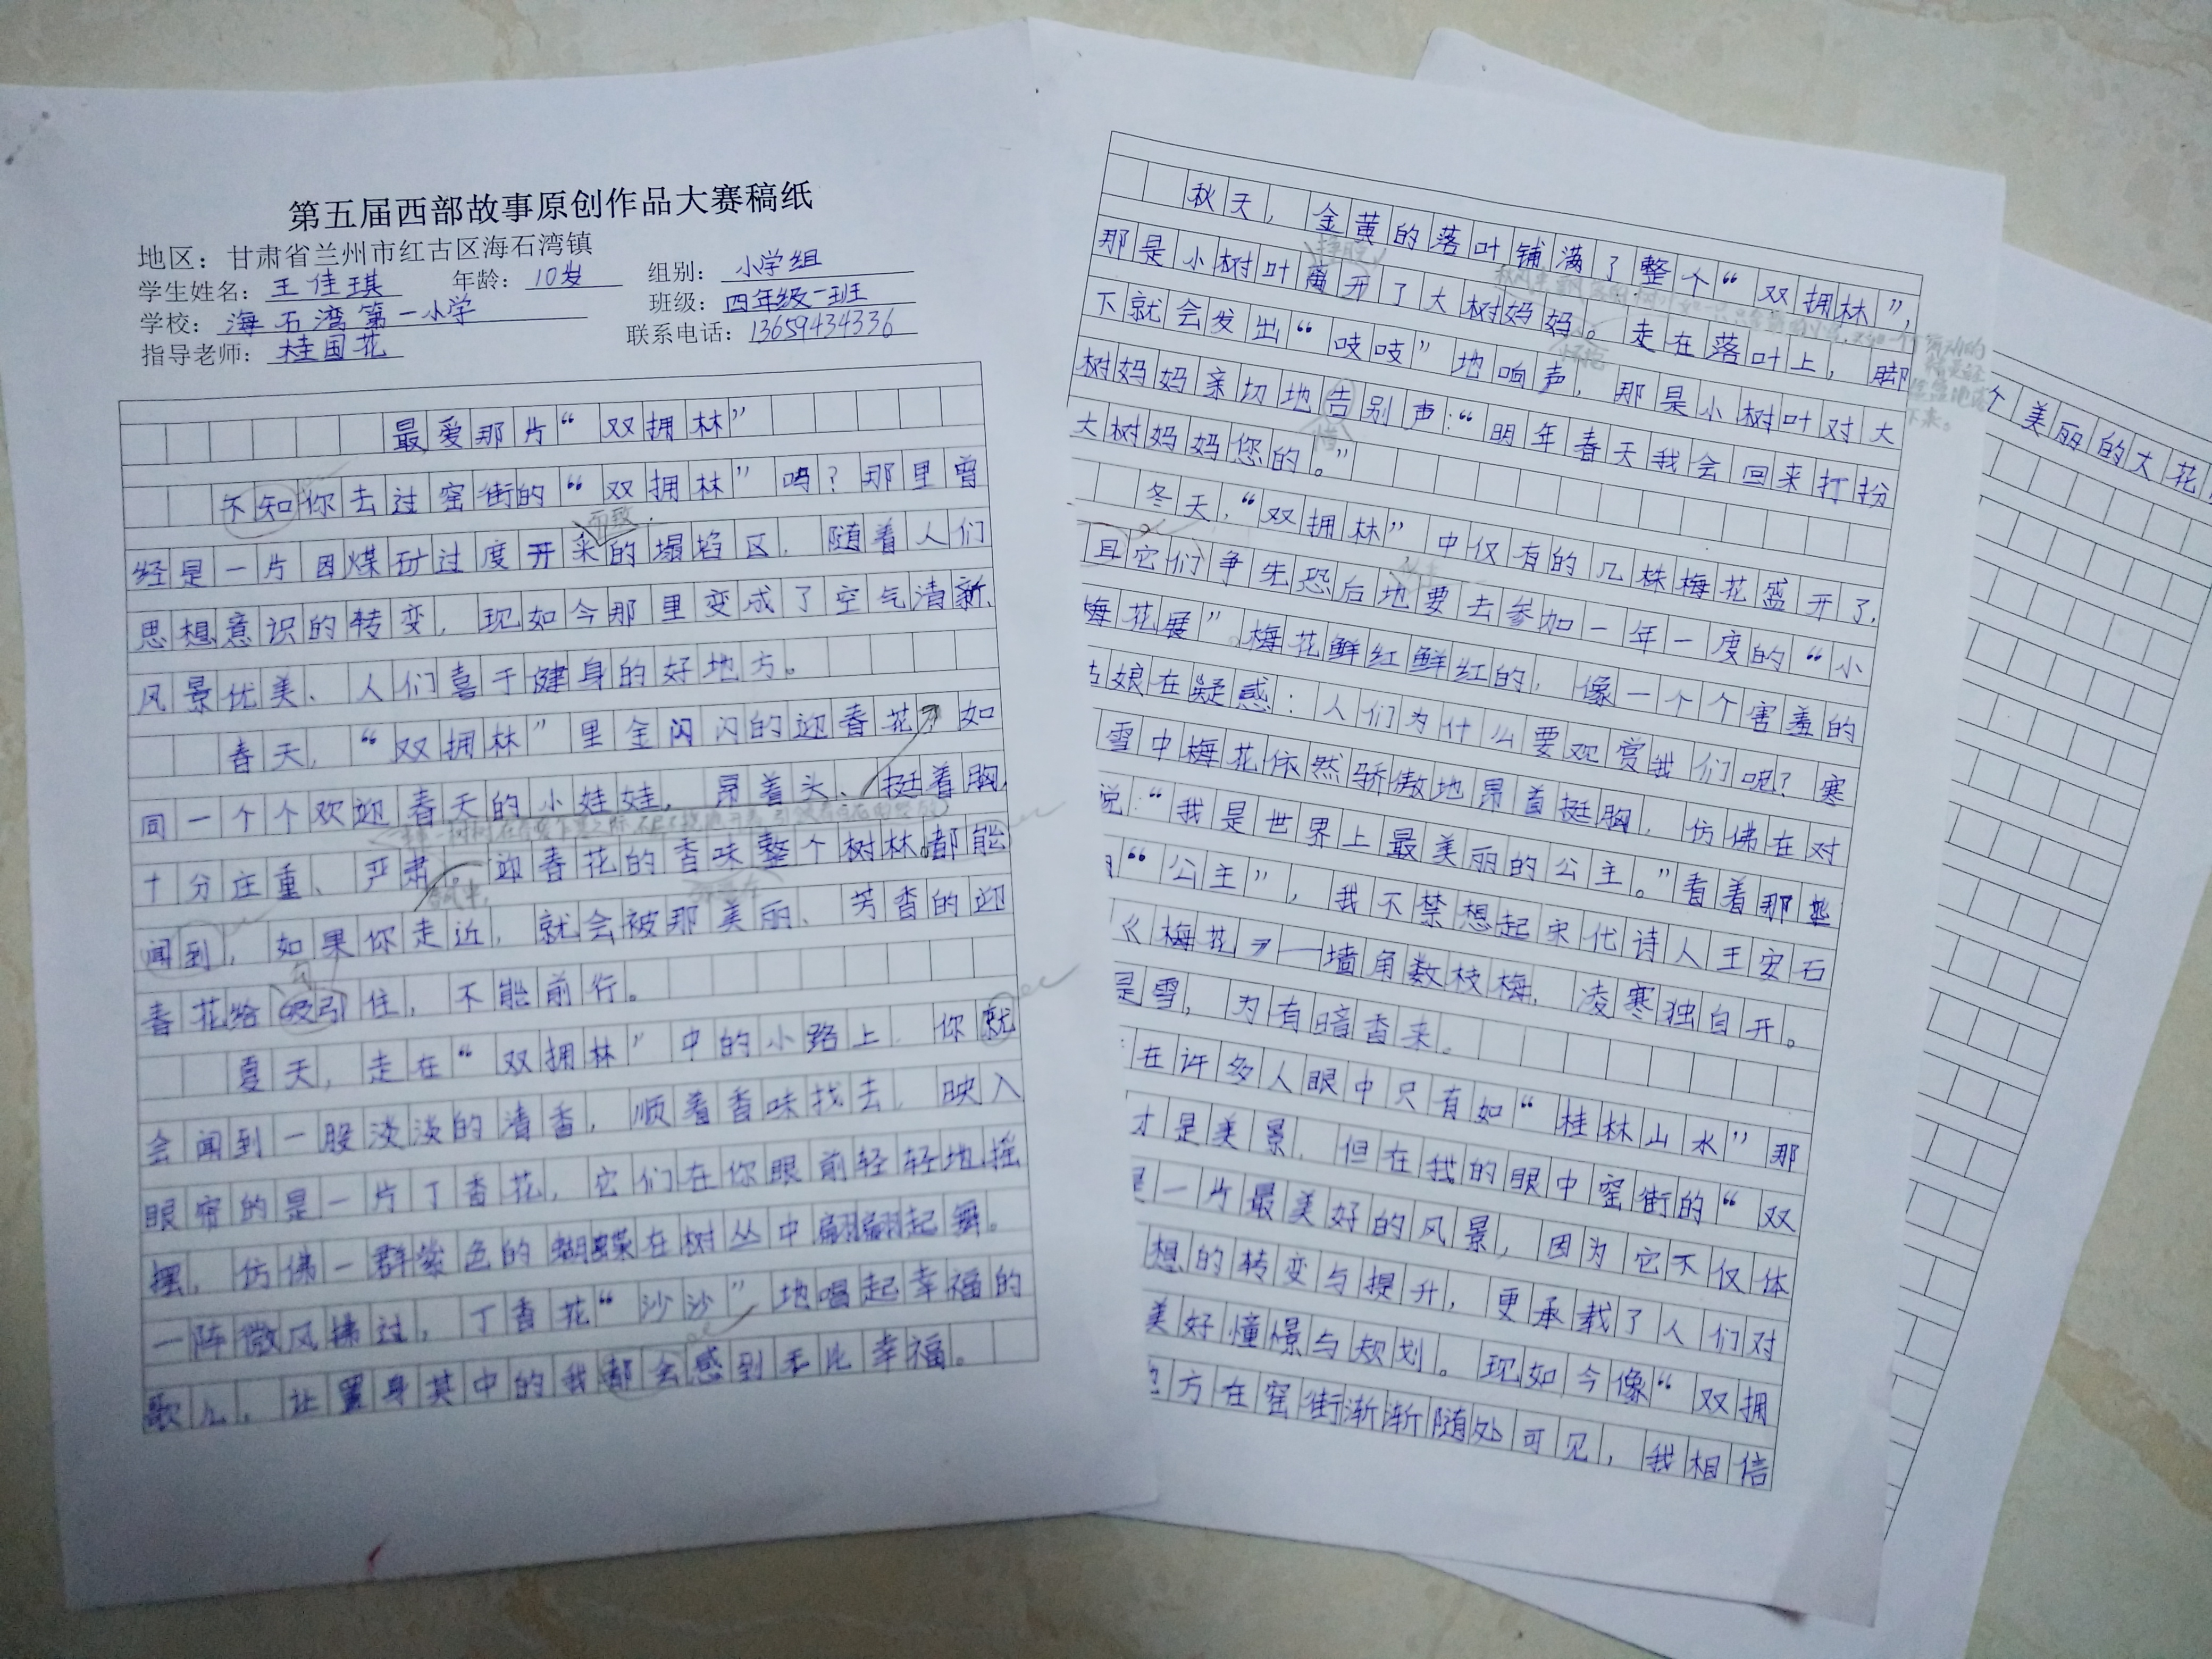 第五届西部故事原创作品大赛稿纸
地区：甘肃省兰州市红古区海石湾镇
学生姓名：王佳琪 年龄：10岁 组别：小学组
学校：海石湾第一小学 班级：四年级一班
指导老师：桂国花 联系电话：13659434336
最爱那片“双拥林”
不知你去过窑街的“双拥林”吗？那里曾
经是一片因煤矿过度开采的塌掐区，随着人们
而致
思想意识的转变，现如今那里变成了空气清新、
风景优美、人们喜于健身的好地方。
春天，“双拥林”里金闪闪的迎春花，如
同一个个欢迎春天的小娃娃，昂着头、挺着胸，
十分庄重、严肃，迎春花的香味整个树林都能
闻到，如果你走近，就会被那美丽、芳香的迎
春花给吸引住，不能前行。
夏天，走在“双拥林”中的小路上，你就
会闻到一股淡淡的清香，顺着香味找去，映入
眼帘的是一片丁香花，它们在你眼前轻轻地摇
摆，仿佛一群紫色的蝴蝶在树丛中翩翩起舞。
一阵微风拂过，丁香花“沙沙”地唱起幸福的
歌儿，让置身其中的我都会感到无比幸福。
秋天，金黄的落叶铺满了整个“双拥林”，
那是小树叶离开了大树妈妈。走在落叶上，脚
怀抱
下就会发出“吱吱”地响声，那是小树叶对大
树妈妈亲切地告别声：“明年春天我会回来打扮
大树妈妈您的。”
冬天，“双拥林”中仅有的几株梅花盛开了，
且它们争先恐后地要去参加一年一度的“小
梅花展”。梅花鲜红鲜红的，像一个个害羞的
姑娘在疑惑：人们为什么要观赏我们呢？寒
雪中梅花依然骄傲地昂首挺胸，仿佛在对
说：“我是世界上最美丽的公主。”看着那些
“公主”，我不禁想起宋代诗人王安石
《梅花》一墙角数枝梅，凌寒独自开。
是雪，为有暗香来。
在许多人眼中只有如“桂林山水”那
才是美景，但在我的眼中窑街的“双
是一片最美好的风景，因为它不仅体
想的转变与提升，更承载了人们对
美好憧憬与规划。现如今像“双拥
地方在窑街渐渐随处可见，我相信
个美丽的大花